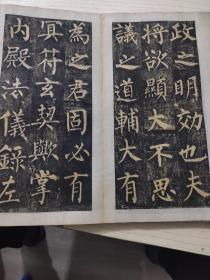 政之明効也夫
将欲顯大不思
議之道輔大有
為之君固必有
冥符玄契歟掌
内殿法儀錄左